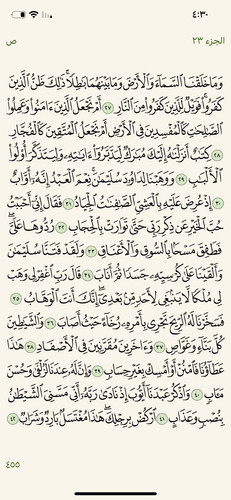 ٤:٣٠
الجزء ٢٣
ص
وَمَا خَلَقْنَا ٱلسَّمَآءَ وَٱلْأَرْضَ وَمَا بَيْنَهُمَا بَٰطِلًا ۚ ذَٰلِكَ ظَنُّ ٱلَّذِينَ
كَفَرُوا۟ ۚ فَوَيْلٌ لِّلَّذِينَ كَفَرُوا۟ مِنَ ٱلنَّارِ ٢٧ أَمْ نَجْعَلُ ٱلَّذِينَ ءَامَنُوا۟ وَعَمِلُوا۟
ٱلصَّٰلِحَٰتِ كَٱلْمُفْسِدِينَ فِى ٱلْأَرْضِ أَمْ نَجْعَلُ ٱلْمُتَّقِينَ كَٱلْفُجَّارِ
٢٨ كِتَٰبٌ أَنزَلْنَٰهُ إِلَيْكَ مُبَٰرَكٌ لِّيَدَّبَّرُوٓا۟ ءَايَٰتِهِۦ وَلِيَتَذَكَّرَ أُو۟لُوا۟
ٱلْأَلْبَٰبِ ٢٩ وَوَهَبْنَا لِدَاوُۥدَ سُلَيْمَٰنَ ۚ نِعْمَ ٱلْعَبْدُ ۖ إِنَّهُۥٓ أَوَّابٌ
٣٠ إِذْ عُرِضَ عَلَيْهِ بِٱلْعَشِىِّ ٱلصَّٰفِنَٰتُ ٱلْجِيَادُ ٣١ فَقَالَ إِنِّىٓ أَحْبَبْتُ
حُبَّ ٱلْخَيْرِ عَن ذِكْرِ رَبِّى حَتَّىٰ تَوَارَتْ بِٱلْحِجَابِ ٣٢ رُدُّوهَا عَلَىَّ ۖ
فَطَفِقَ مَسْحًۢا بِٱلسُّوقِ وَٱلْأَعْنَاقِ ٣٣ وَلَقَدْ فَتَنَّا سُلَيْمَٰنَ
وَأَلْقَيْنَا عَلَىٰ كُرْسِيِّهِۦ جَسَدًا ثُمَّ أَنَابَ ٣٤ قَالَ رَبِّ ٱغْفِرْ لِى وَهَبْ
لِى مُلْكًا لَّا يَنۢبَغِى لِأَحَدٍ مِّنۢ بَعْدِىٓ ۖ إِنَّكَ أَنتَ ٱلْوَهَّابُ ٣٥
فَسَخَّرْنَا لَهُ ٱلرِّيحَ تَجْرِى بِأَمْرِهِۦ رُخَآءً حَيْثُ أَصَابَ ٣٦ وَٱلشَّيَٰطِينَ
كُلَّ بَنَّآءٍ وَغَوَّاصٍ ٣٧ وَءَاخَرِينَ مُقَرَّنِينَ فِى ٱلْأَصْفَادِ ٣٨ هَٰذَا
عَطَآؤُنَا فَٱمْنُنْ أَوْ أَمْسِكْ بِغَيْرِ حِسَابٍ ٣٩ وَإِنَّ لَهُۥ عِندَنَا لَزُلْفَىٰ وَحُسْنَ
مَـَٔابٍ ٤٠ وَٱذْكُرْ عَبْدَنَآ أَيُّوبَ إِذْ نَادَىٰ رَبَّهُۥٓ أَنِّى مَسَّنِىَ ٱلشَّيْطَٰنُ
بِنُصْبٍ وَعَذَابٍ ٤١ ٱرْكُضْ بِرِجْلِكَ ۖ هَٰذَا مُغْتَسَلٌۢ بَارِدٌ وَشَرَابٌ ٤٢
٤٥٥